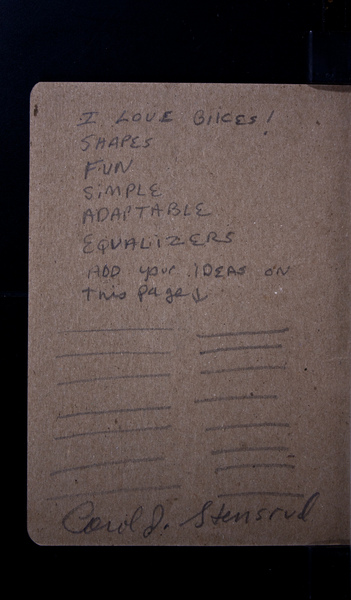 I LOVE BIKES!
SHAPES
FUN
SIMPLE
ADAPTABLE
EQUALIZERS
ADD your IDEAS ON
this page ↓
Carol J. Stensrud